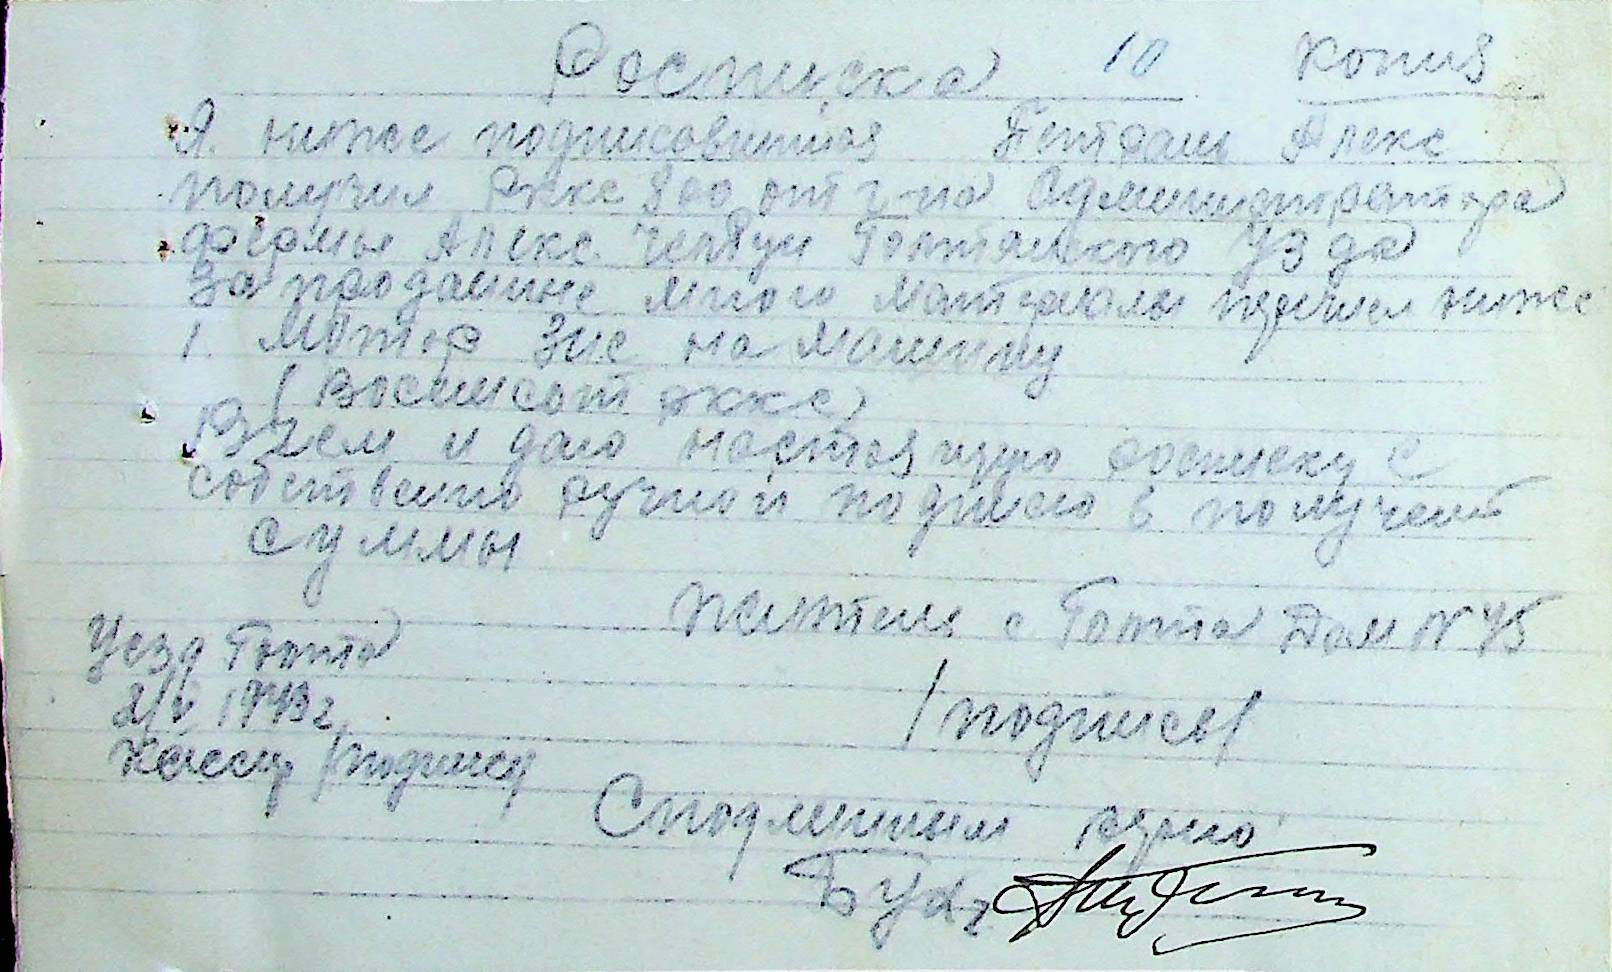 Росписка 10 Копия
Я. ниже подписавшися Пентрань Алекс
получил рккс 800 от г-на Администратора
фермы Алекс. Гоптянского Узда
За проданние много материалы перечисл ниже
1. Мотор Зис на машину
(Восемьсот рккс)
В чем и даю настоящую росписку с
собственно ручной подписью в получени
суммы
Житель с Гопта Дом N 45
Уезд Гопта
/подпись/
2/V 1943г.
Кассир /подпись/
С подлинным верно
Бухг.